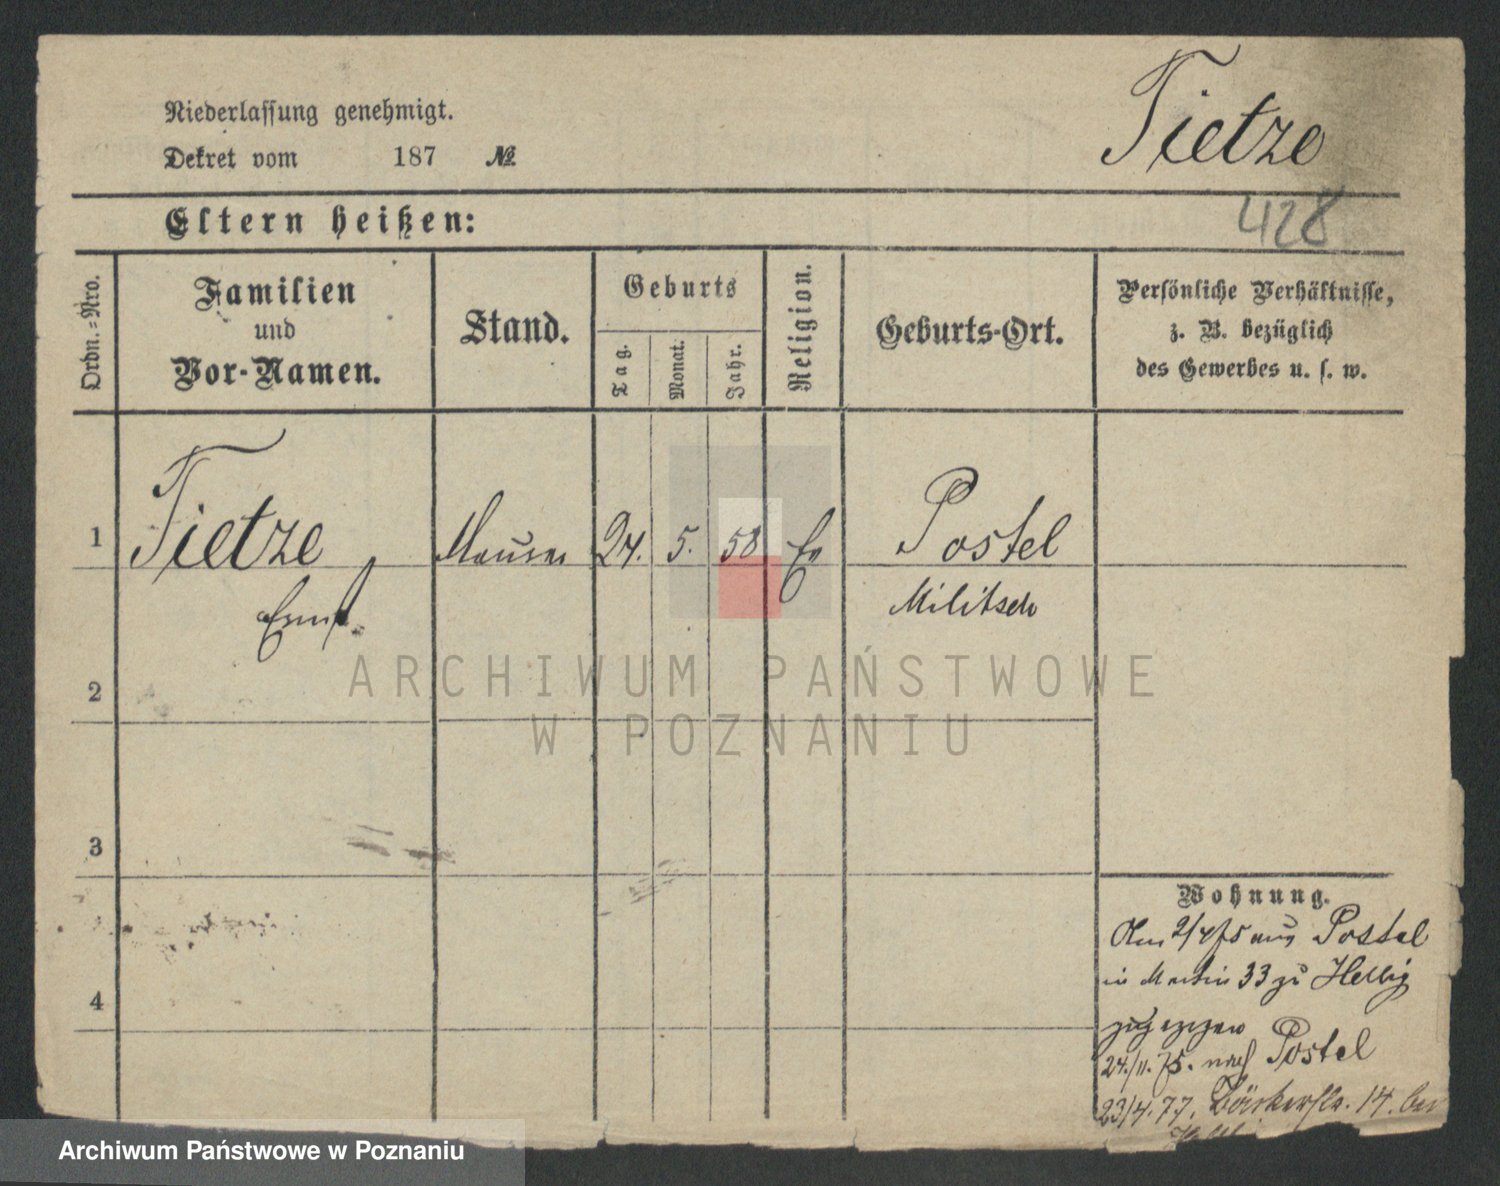 Tietze
Niederlassung genehmigt.
Dekret vom 187 №
428
Eltern heißen:
Ordn.=Nro.
Familien
und
Vor-Namen.
Stand.
Geburts
Tag.
Monat.
Jahr.
Religion.
Geburts-Ort.
Persönliche Verhältnisse,
z. B. bezüglich
des Gewerbes u. s. w.
1 Tietze Maurer 24. 5. 58 Ev Postel
Ernst Militsch
ARCHIWUM PAŃSTWOWE
W POZNANIU
2
3
4
Wohnung.
Am 2/4 75 aus Postel
in Martin 33 zu Helbig
zugezogen
24./11. 75. nach Postel
23/4. 77. Bäckerstr. 14. bei
Archiwum Państwowe w Poznaniu